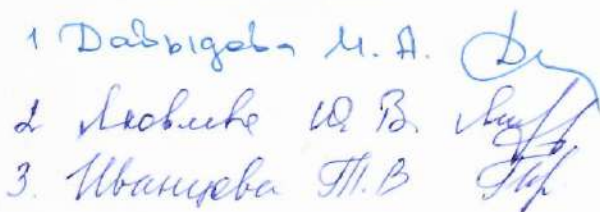 1 Давыдова М. А.
2 Яковлева Ю. В.
3. Иванцова Т. В